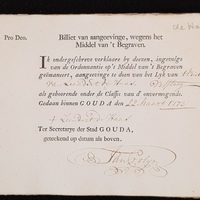 de Haa
Pro Deo.
Billiet van aangeevinge, wegens het
Middel van 't Begraven.
Ik ondergeschreven verklaare by deezen, ingevolge
van de Ordonnantie op 't Middel van 't Begraven
geëmaneert, aangeevinge te doen van het Lyk van
als gehoorende onder de Classis van d' onvermogende.
Gedaan binnen GOUDA, den 22 Maart 1773
Ter Secretarye der Stad GOUDA,
geteekend op datum als boven.